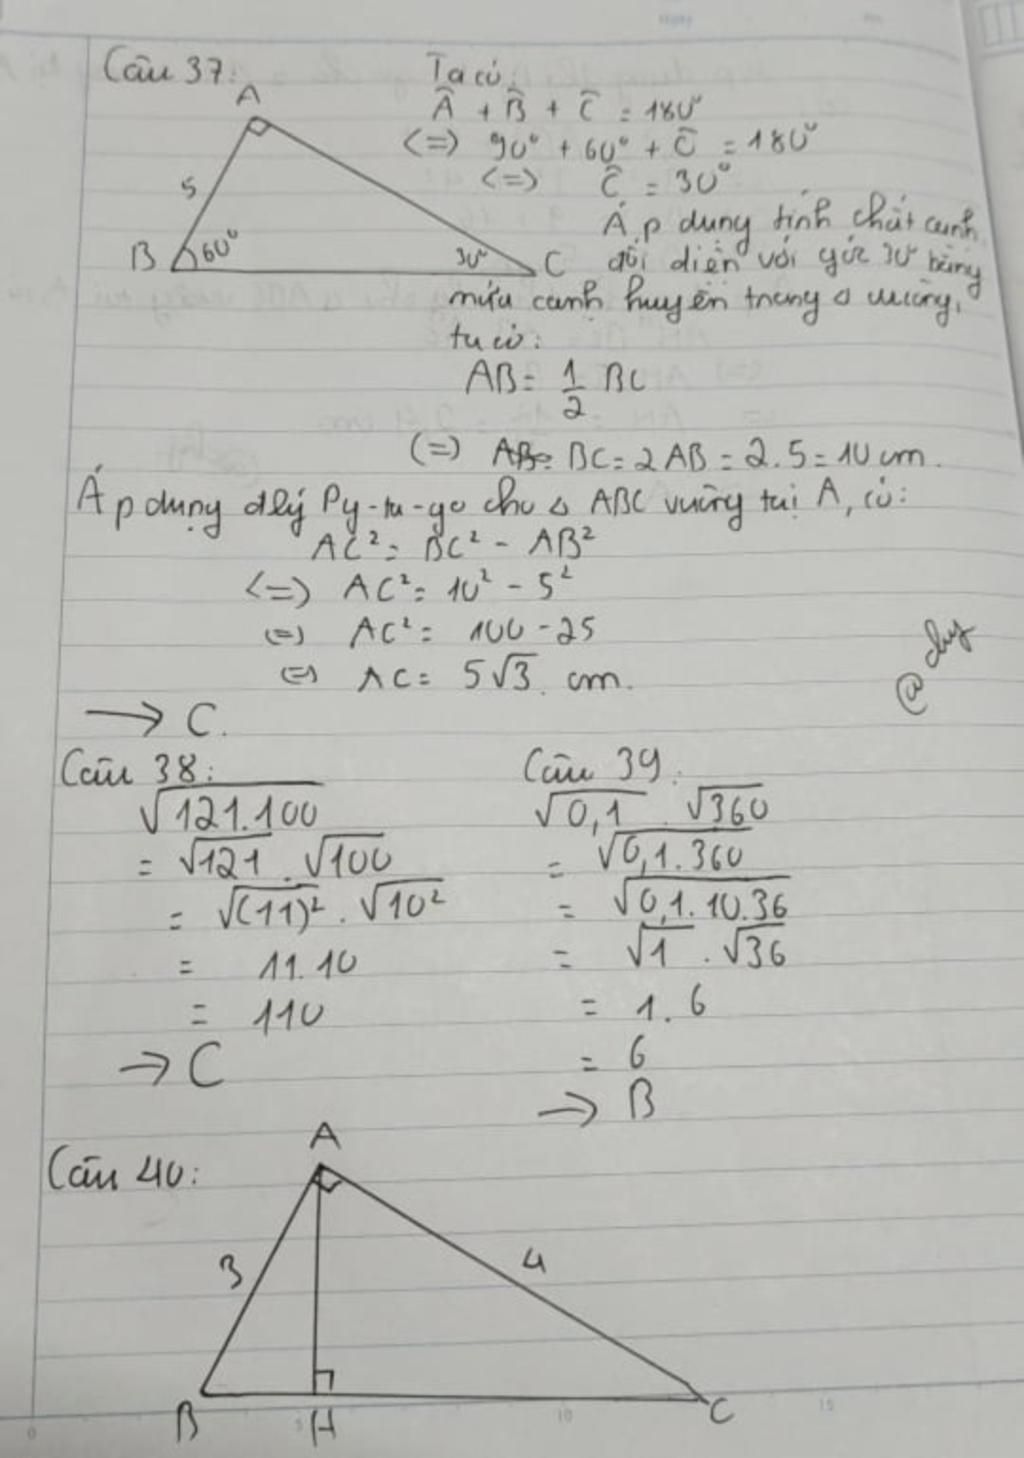 Câu 37:
A
5
B 60° 30° C
Ta có
Â + B̂ + Ĉ = 180°
(=) 90° + 60° + Ĉ = 180°
(=) Ĉ = 30°
Áp dụng tính chất cạnh
đối diện với góc 30° bằng
nửa cạnh huyền trong Δ vuông,
ta có:
AB = 1/2 BC
(=) BC = 2AB = 2.5 = 10 cm.
Áp dụng đlý Py-ta-go cho Δ ABC vuông tại A, có:
AC² = BC² - AB²
(=) AC² = 10² - 5²
(=) AC² = 100 - 25
(=) AC = 5√3 cm.
→ C.
Câu 38:
√121.100
= √121 . √100
= √(11)² . √10²
= 11.10
= 110
→ C
Câu 39.
√0,1 . √360
= √0,1.360
= √0,1.10.36
= √1 . √36
= 1.6
= 6
→ B
Câu 40:
A
3 4
B H C
5 10 15
0